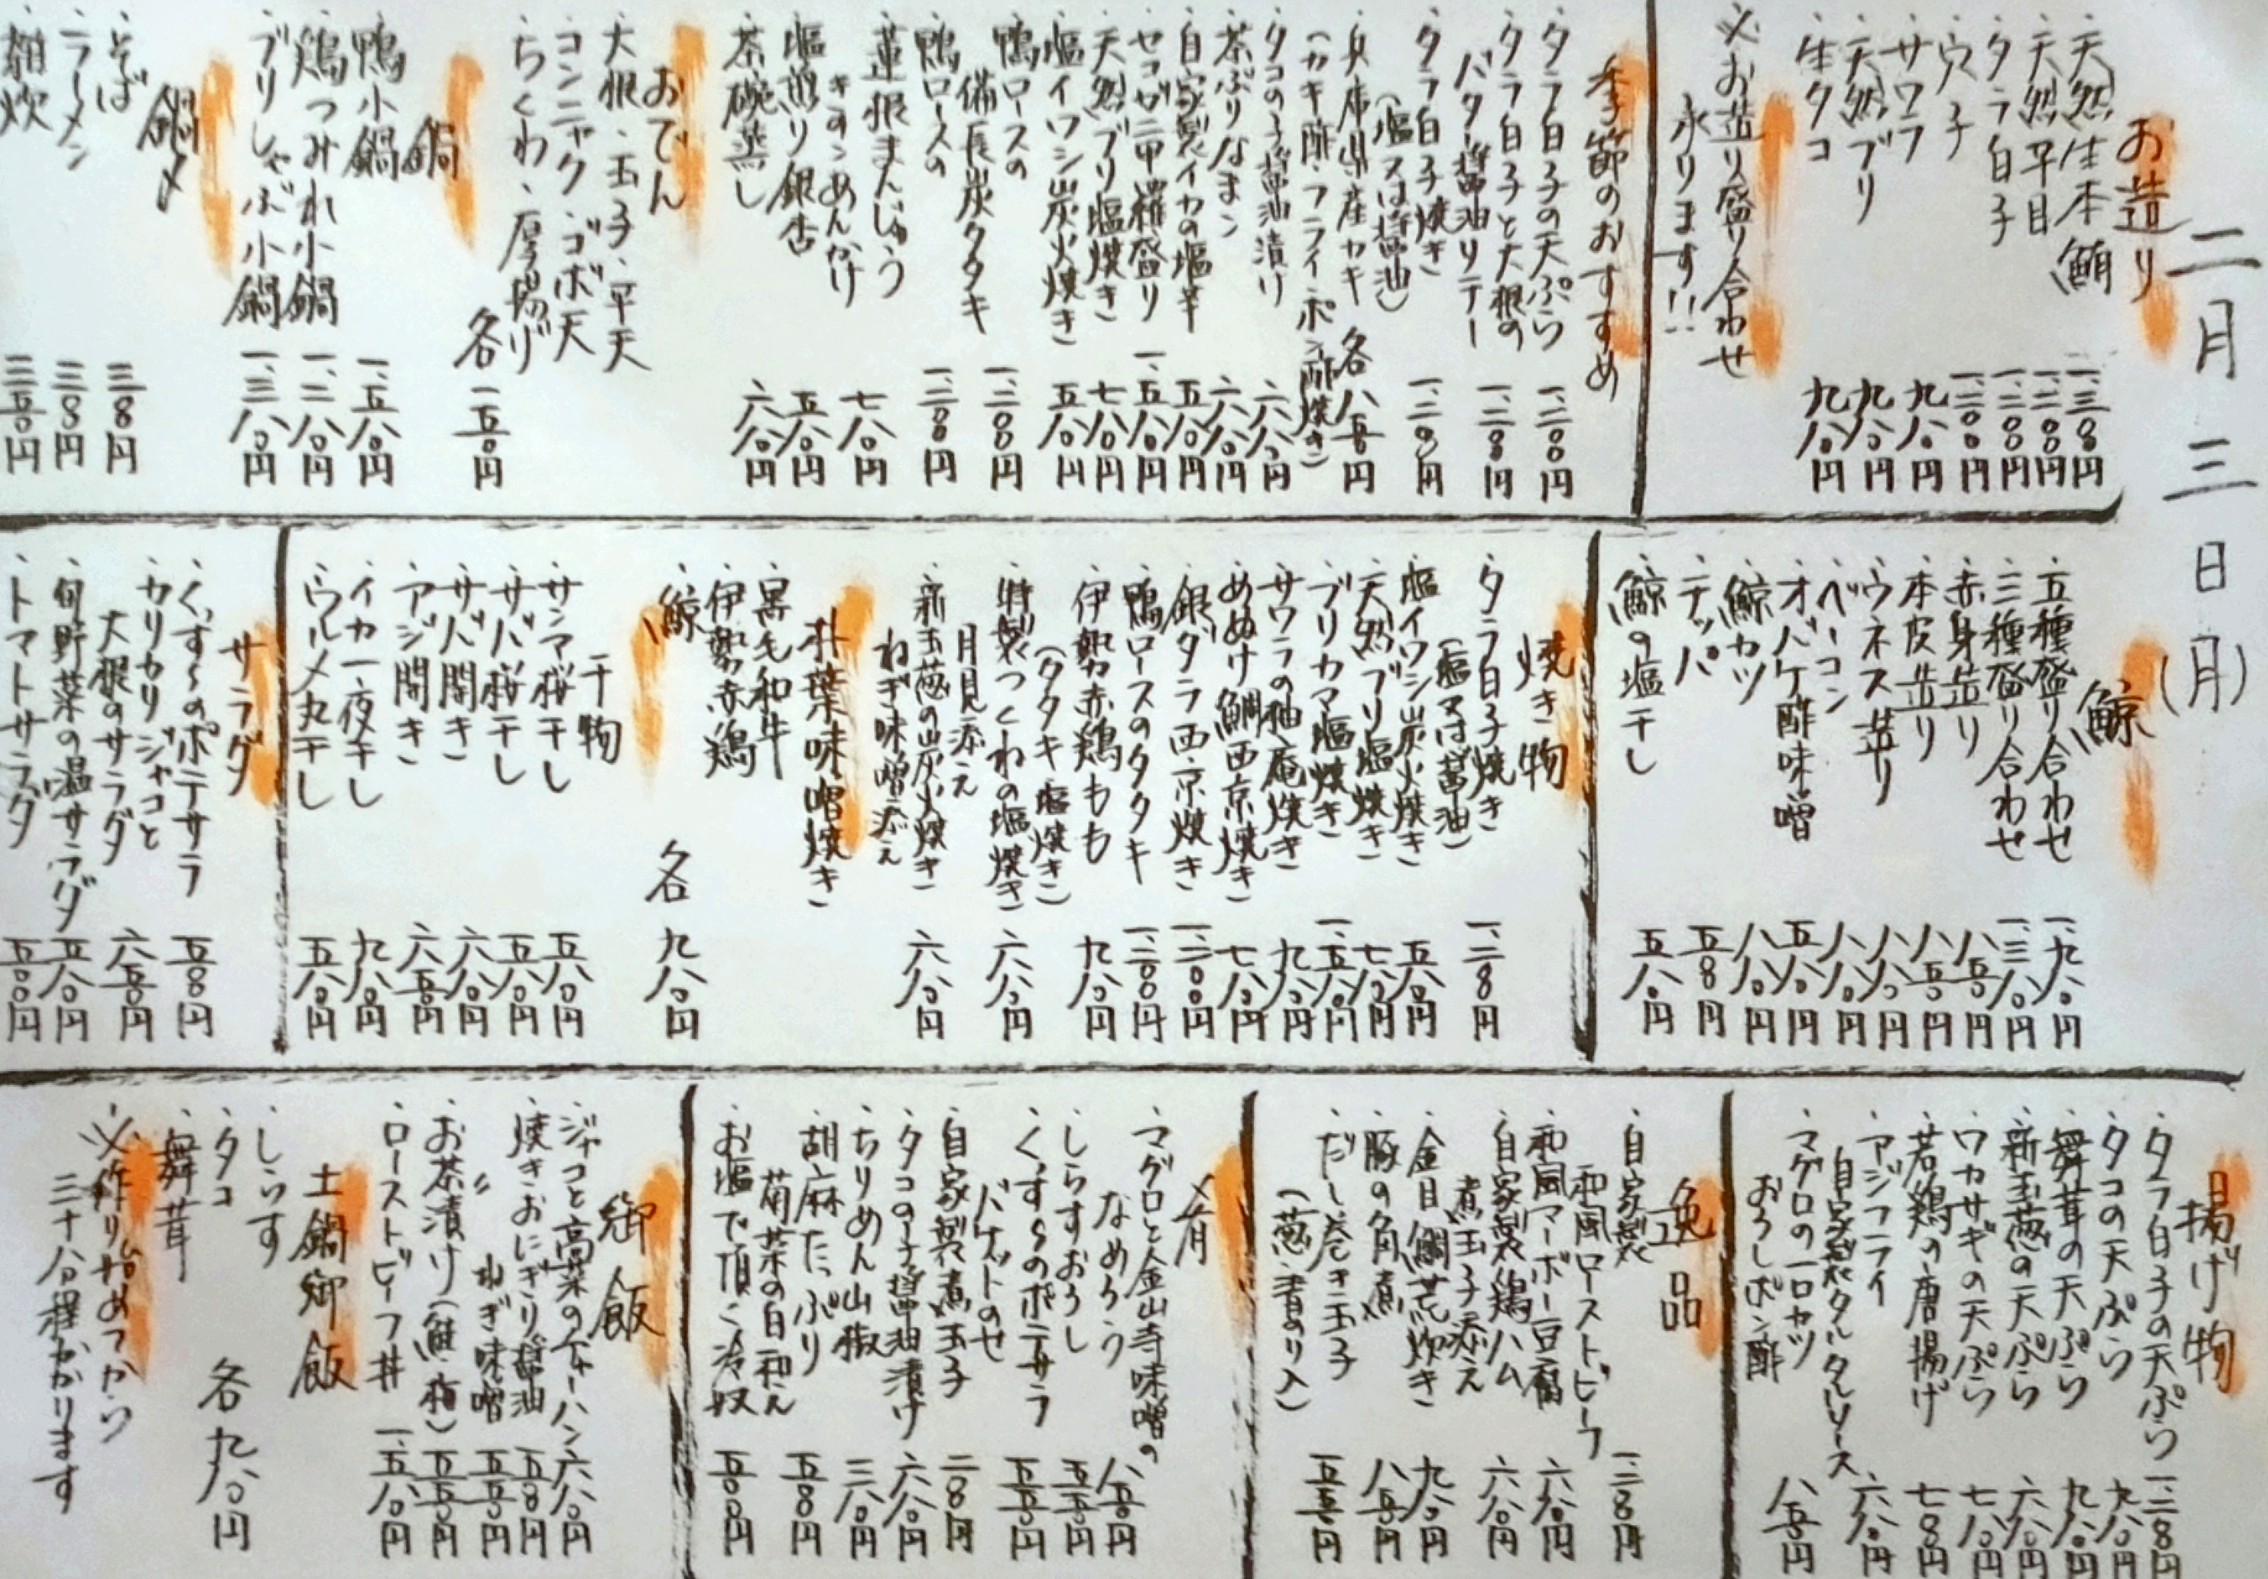 二月三日(月)
お造り
・天然生本鮪 一、三八〇円
・天然平目 一、二〇〇円
・タラ白子 一、二〇〇円
・穴子 一、二〇〇円
・サワラ 九八〇円
・天然ブリ 九八〇円
・生タコ 九八〇円
※お造り盛り合わせ
承ります!!
季節のおすすめ
・タラ白子の天ぷら 一、二〇〇円
・タラ白子と大根の
バター醤油ソテー 一、二八〇円
・タラ白子焼き
(塩又は醤油) 一、二〇〇円
・兵庫県産カキ 各八五〇円
(カキ酢・フライ・ポン酢焼き)
・タコの子醤油漬け 六八〇円
・茶ぶりなまこ 六八〇円
・自家製イカの塩辛 五八〇円
・セコガニ甲羅盛り 一、五八〇円
・天然ブリ塩焼き 七八〇円
・塩イワシ炭火焼き 五八〇円
・鴨ロースの
備長炭タタキ 一、二〇〇円
・鴨ロースの
・蓮根まんじゅう
きのこあんかけ 七八〇円
・塩煎り銀杏 五八〇円
・茶碗蒸し 六八〇円
おでん
・大根・玉子・平天
・コンニャク・ゴボ天
・ちくわ・厚揚げ
各一五〇円
鍋
・鴨小鍋 一、五八〇円
・鶏つみれ小鍋 一、二八〇円
・ブリしゃぶ小鍋 一、三八〇円
鍋〆
・そば 三八〇円
・ラーメン 三八〇円
・雑炊 三五〇円
鯨
・五種盛り合わせ 一、九八〇円
・三種盛り合わせ 一、三八〇円
・赤身造り 八五〇円
・本皮造り 八五〇円
・ウネス造り 八八〇円
・ベーコン 八八〇円
・オバケ酢味噌 五八〇円
・鯨カツ 八八〇円
・テッパ 五八〇円
・鯨の塩干し 五八〇円
焼き物
・タラ白子焼き
(塩又は醤油) 一、二八〇円
・塩イワシ炭火焼き 五八〇円
・天然ブリ塩焼き 七八〇円
・ブリカマ塩焼き 一、五八〇円
・サワラの柚庵焼き 九八〇円
・めぬけ鯛西京焼き 七八〇円
・銀ダラ西京焼き 一、二〇〇円
・鴨ロースのタタキ 一、二〇〇円
・伊勢赤鶏もも
(タタキ・塩焼き) 九八〇円
・特製つくねの塩焼き
月見添え 六八〇円
・新玉葱の炭火焼き
ねぎ味噌添え 六八〇円
朴葉味噌焼き
・黒毛和牛
・伊勢赤鶏
・鯨
各九八〇円
干物
・サンマ桜干し 五八〇円
・サバ桜干し 五八〇円
・サバ開き 六八〇円
・アジ開き 六五〇円
・イカ一夜干し 九八〇円
・ウルメ丸干し 五八〇円
サラダ
・くずしのポテサラ 五八〇円
・カリカリジャコと
大根のサラダ 六五〇円
・旬野菜の温サラダ 五八〇円
・トマトサラダ 五〇〇円
揚げ物
・タラ白子の天ぷら 一、二八〇円
・タコの天ぷら 九八〇円
・舞茸の天ぷら 九八〇円
・新玉葱の天ぷら 六八〇円
・ワカサギの天ぷら 七八〇円
・若鶏の唐揚げ 七八〇円
・アジフライ
自家製タルタルソース 六八〇円
・マグロの一口カツ
おろしポン酢 八五〇円
逸品
・自家製
和風ローストビーフ 一、二八〇円
・和風マーボー豆腐 六八〇円
・自家製鶏ハム
煮玉子添え 六八〇円
・金目鯛荒炊き 九八〇円
・豚の角煮 八五〇円
・だし巻き玉子
(葱・青のり入) 五五〇円
〆肴
・マグロと金山寺味噌の
なめろう 八五〇円
・しらすおろし 五五〇円
・くずしのポテサラ
バゲットのせ 五五〇円
・自家製煮玉子 二八〇円
・タコの子醤油漬け 六八〇円
・ちりめん山椒 三八〇円
・胡麻たっぷり
菊菜の白和え 五八〇円
・お塩で頂く冷奴 五〇〇円
御飯
・ジャコと高菜のチャーハン 六八〇円
・焼きおにぎり醤油 五八〇円
・〃 ねぎ味噌 五五〇円
・お茶漬け(鮭・梅) 五五〇円
・ローストビーフ丼 一、五八〇円
土鍋御飯
・しらす
・タコ
・舞茸
各九八〇円
※作り始めてから
三十分程かかります